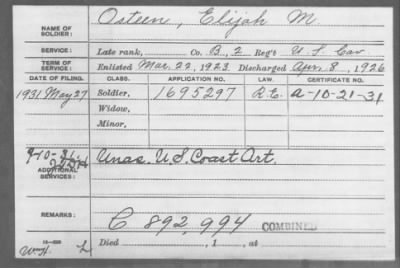 NAME OF SOLDIER: Osteen, Elijah M.
SERVICE: Late rank, Co. B, 2 Reg't U. S. Cav
TERM OF SERVICE: Enlisted Mar. 22, 1923 Discharged Apr. 8, 1926
DATE OF FILING. CLASS. APPLICATION NO. LAW. CERTIFICATE NO.
1931 May 27 Soldier, 1695297 R.E. A-10-21-31
Widow,
Minor,
ADDITIONAL SERVICES: 9-10-31 Unas. U S Coast Art.
REMARKS: C 892,994 COMBINED
Died , 1 , at